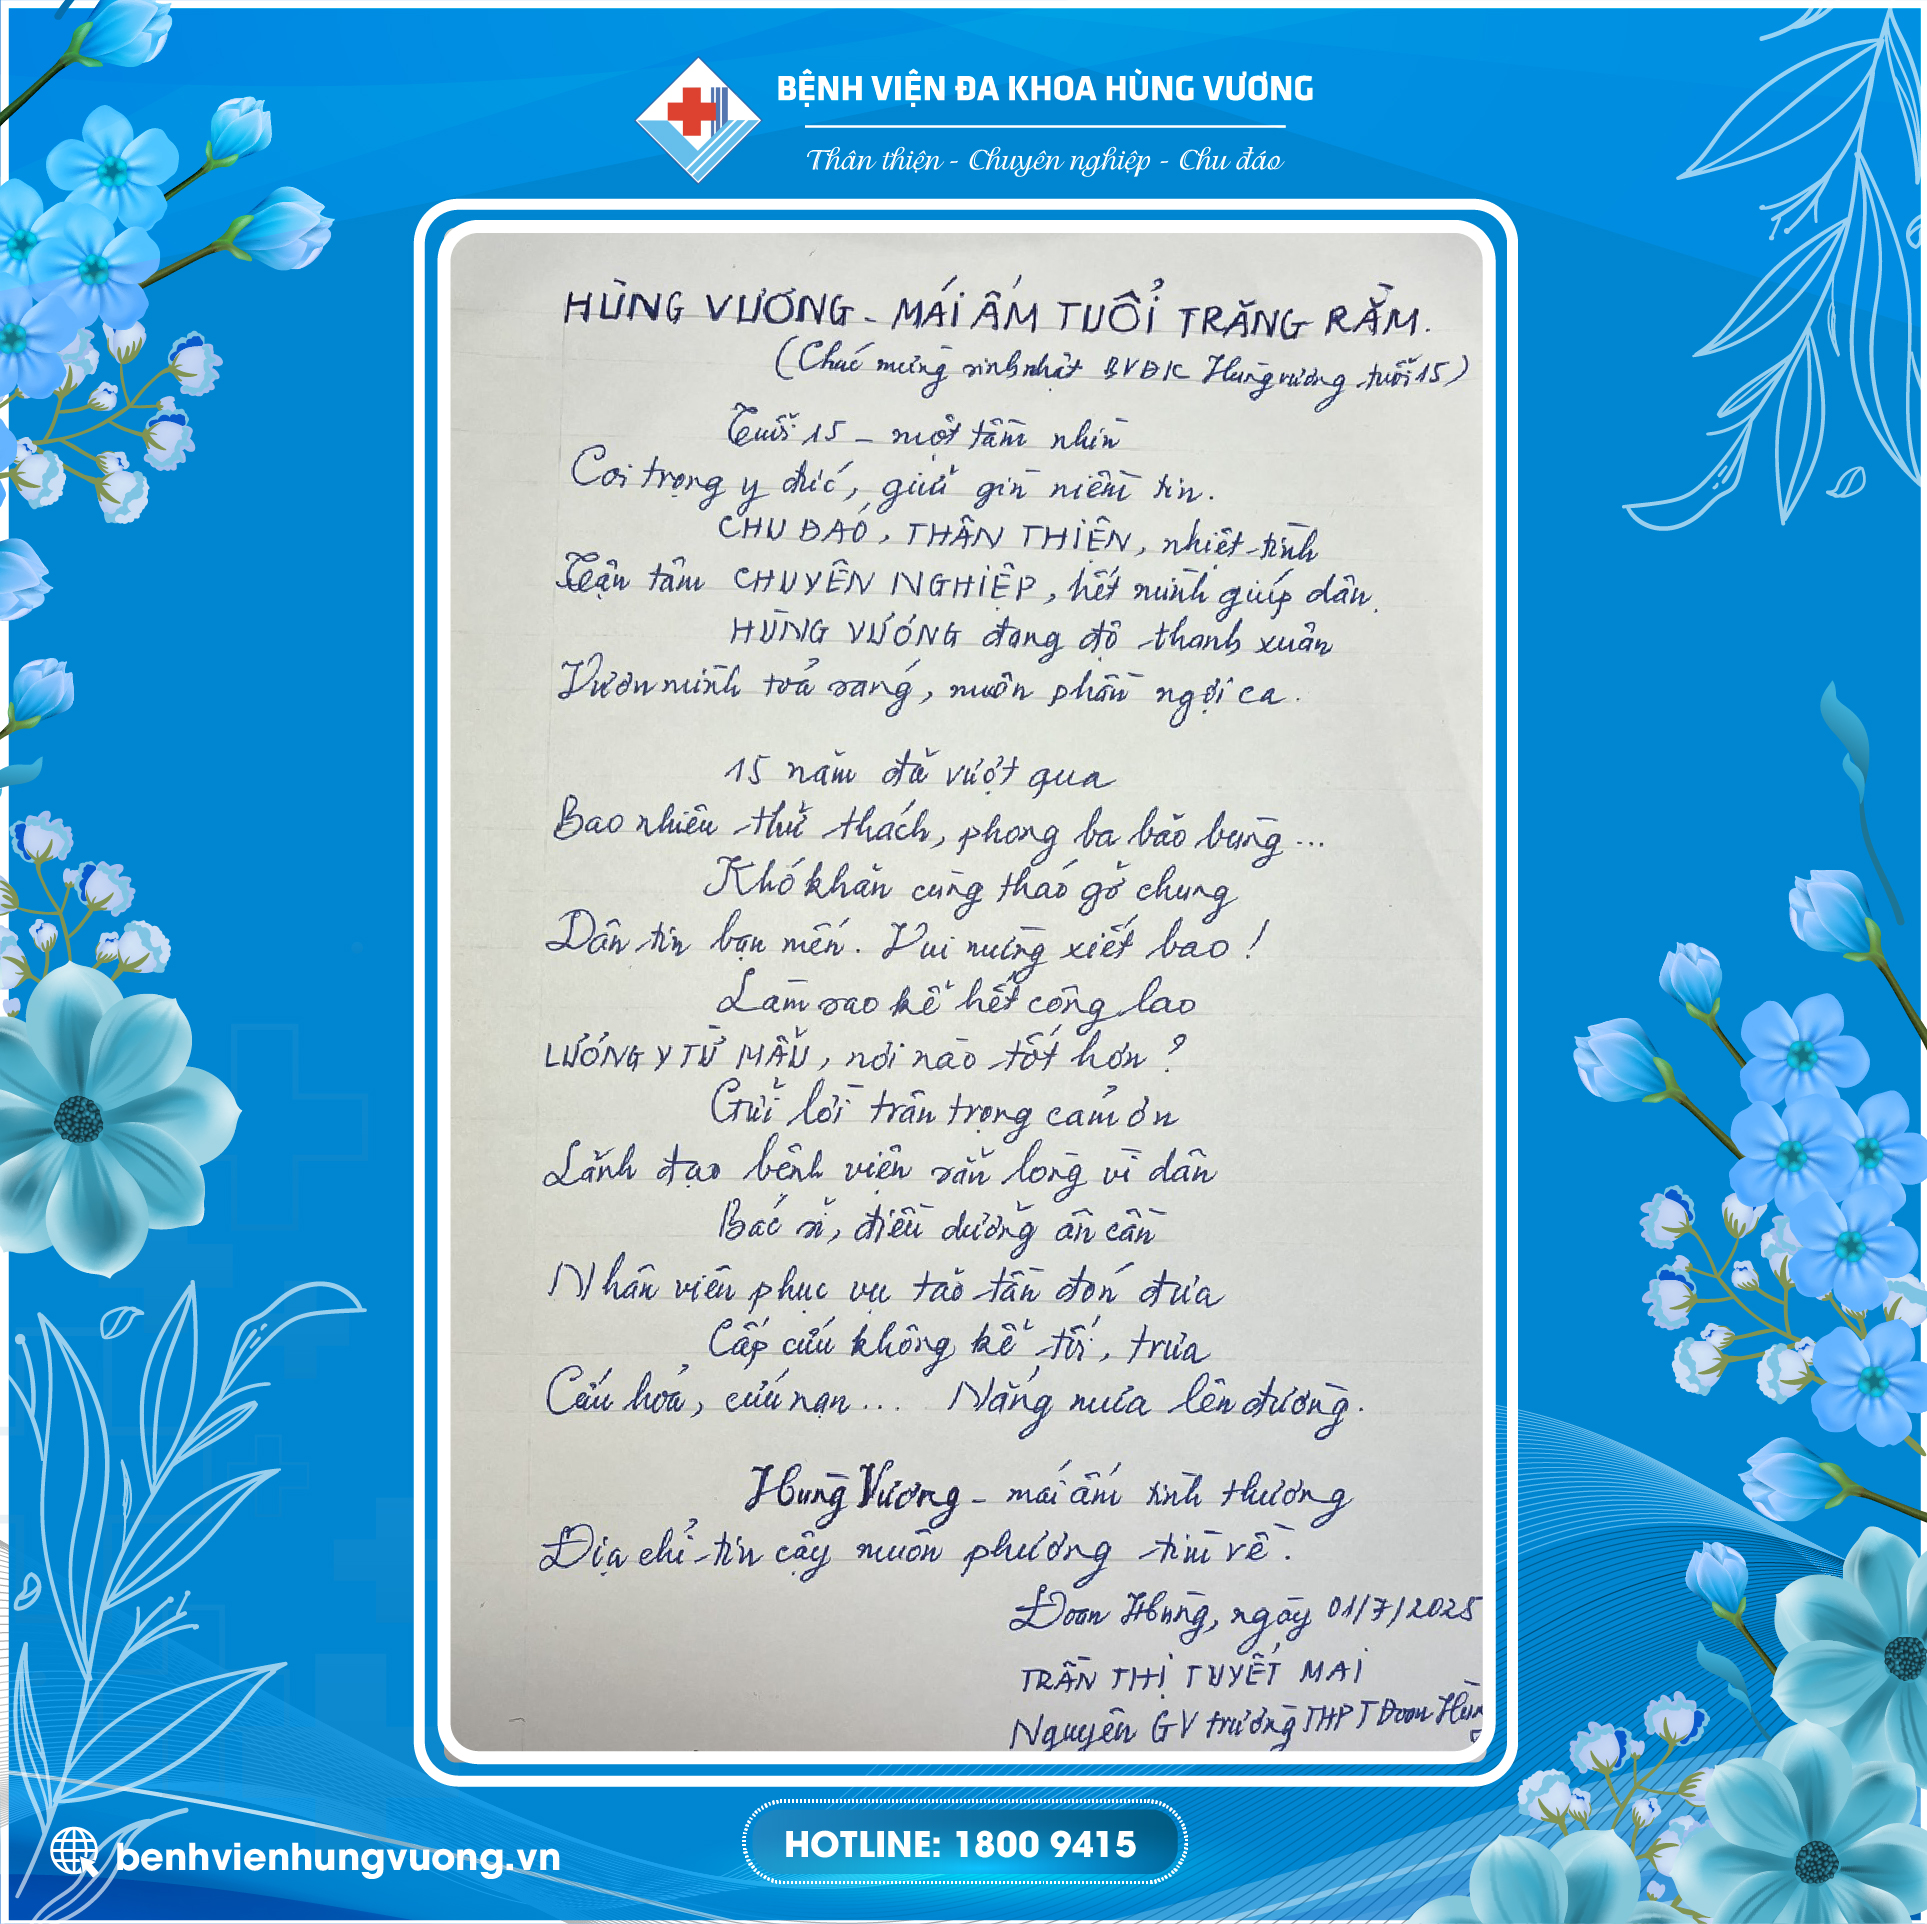 BỆNH VIỆN ĐA KHOA HÙNG VƯƠNG
Thân thiện - Chuyên nghiệp - Chu đáo
HÙNG VƯƠNG - MÁI ẤM TUỔI TRĂNG RẰM.
(Chúc mừng sinh nhật BVĐK Hùng vương tuổi 15)
Tuổi 15 - một tầm nhìn
Coi trọng y đức, giữ gìn niềm tin.
CHU ĐÁO, THÂN THIỆN, nhiệt tình
Tận tâm CHUYÊN NGHIỆP, hết mình giúp dân.
HÙNG VƯƠNG đang độ thanh xuân
Vươn mình toả sáng, muôn phần ngợi ca.
15 năm đã vượt qua
Bao nhiêu thử thách, phong ba bão bùng...
Khó khăn cùng tháo gỡ chung
Dân tin bạn mến. Vui mừng xiết bao!
Làm sao kể hết công lao
LƯƠNG Y TỪ MẪU, nơi nào tốt hơn?
Gửi lời trân trọng cảm ơn
Lãnh đạo bệnh viện sẵn lòng vì dân
Bác sĩ, điều dưỡng ân cần
Nhân viên phục vụ tảo tần đón đưa
Cấp cứu không kể tối, trưa
Cứu hoả, cứu nạn... Nắng mưa lên đường.
Hùng Vương - mái ấm tình thương
Địa chỉ tin cậy muôn phương tìm về.
Đoan Hùng, ngày 01/7/2025
TRẦN THỊ TUYẾT MAI
Nguyên GV trường THPT Đoan Hùn
benhvienhungvuong.vn
HOTLINE: 1800 9415